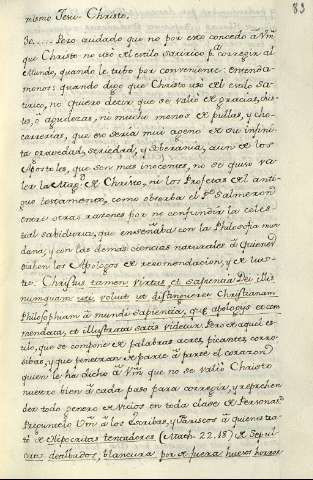 83
nismo Jesu-Christo.
3e..... Pero cuidado que no por esto concedo â Vm̃
que Christo no usó el estilo satirico pª corregir al
Mundo, quando le tubo por conveniente: entenda-
monos: quando digo que Christo usó el estilo Sa-
tirico, no quiero decir que se valió de gracias, chis-
tes, ô agudezas, ni mucho menos de pullas, y cho-
carrerias, que eso seria mui ageno de su infini-
ta gravedad, seriedad, y soberania, aun de los
Apostoles, que son mas inocentes, no se quiso va-
ler la Magd. de Christo, ni los Profetas del anti-
guo testamento, como observa el Pe. Salmeron
entre otras razones por no confundir la celes-
tial sabiduria, que enseñaba con la Philosofia mun-
dana, y con las demas ciencias naturales â quienes
sirben los Apologos de recomendacion, y de lus-
tre. Christus tamen virtus et sapientia Dei illis
numquam uti voluit ut distingueret Christianam
Philosophiam â mundi sapientia, quæ apologys com-
mendata, et illustrata satis videtur. Pero de aquel es-
tilo, que se compone de palabras acres, picantes, corro-
sibas, y que penetran de parte â parte el corazon
quien le ha dicho â Vm̃ que no se valió Christo
nuestro bien â cada paso para corregir, y reprehen-
der todo genero de vicios en toda clase de Personas?
Preguntelo Vm̃ â los Escribas, y Fariseos â quienes tra-
tó de Hipocritas tentadores (Math. 22.18) de Sepul-
cros deribidos, blancura por de fuera huesos horror